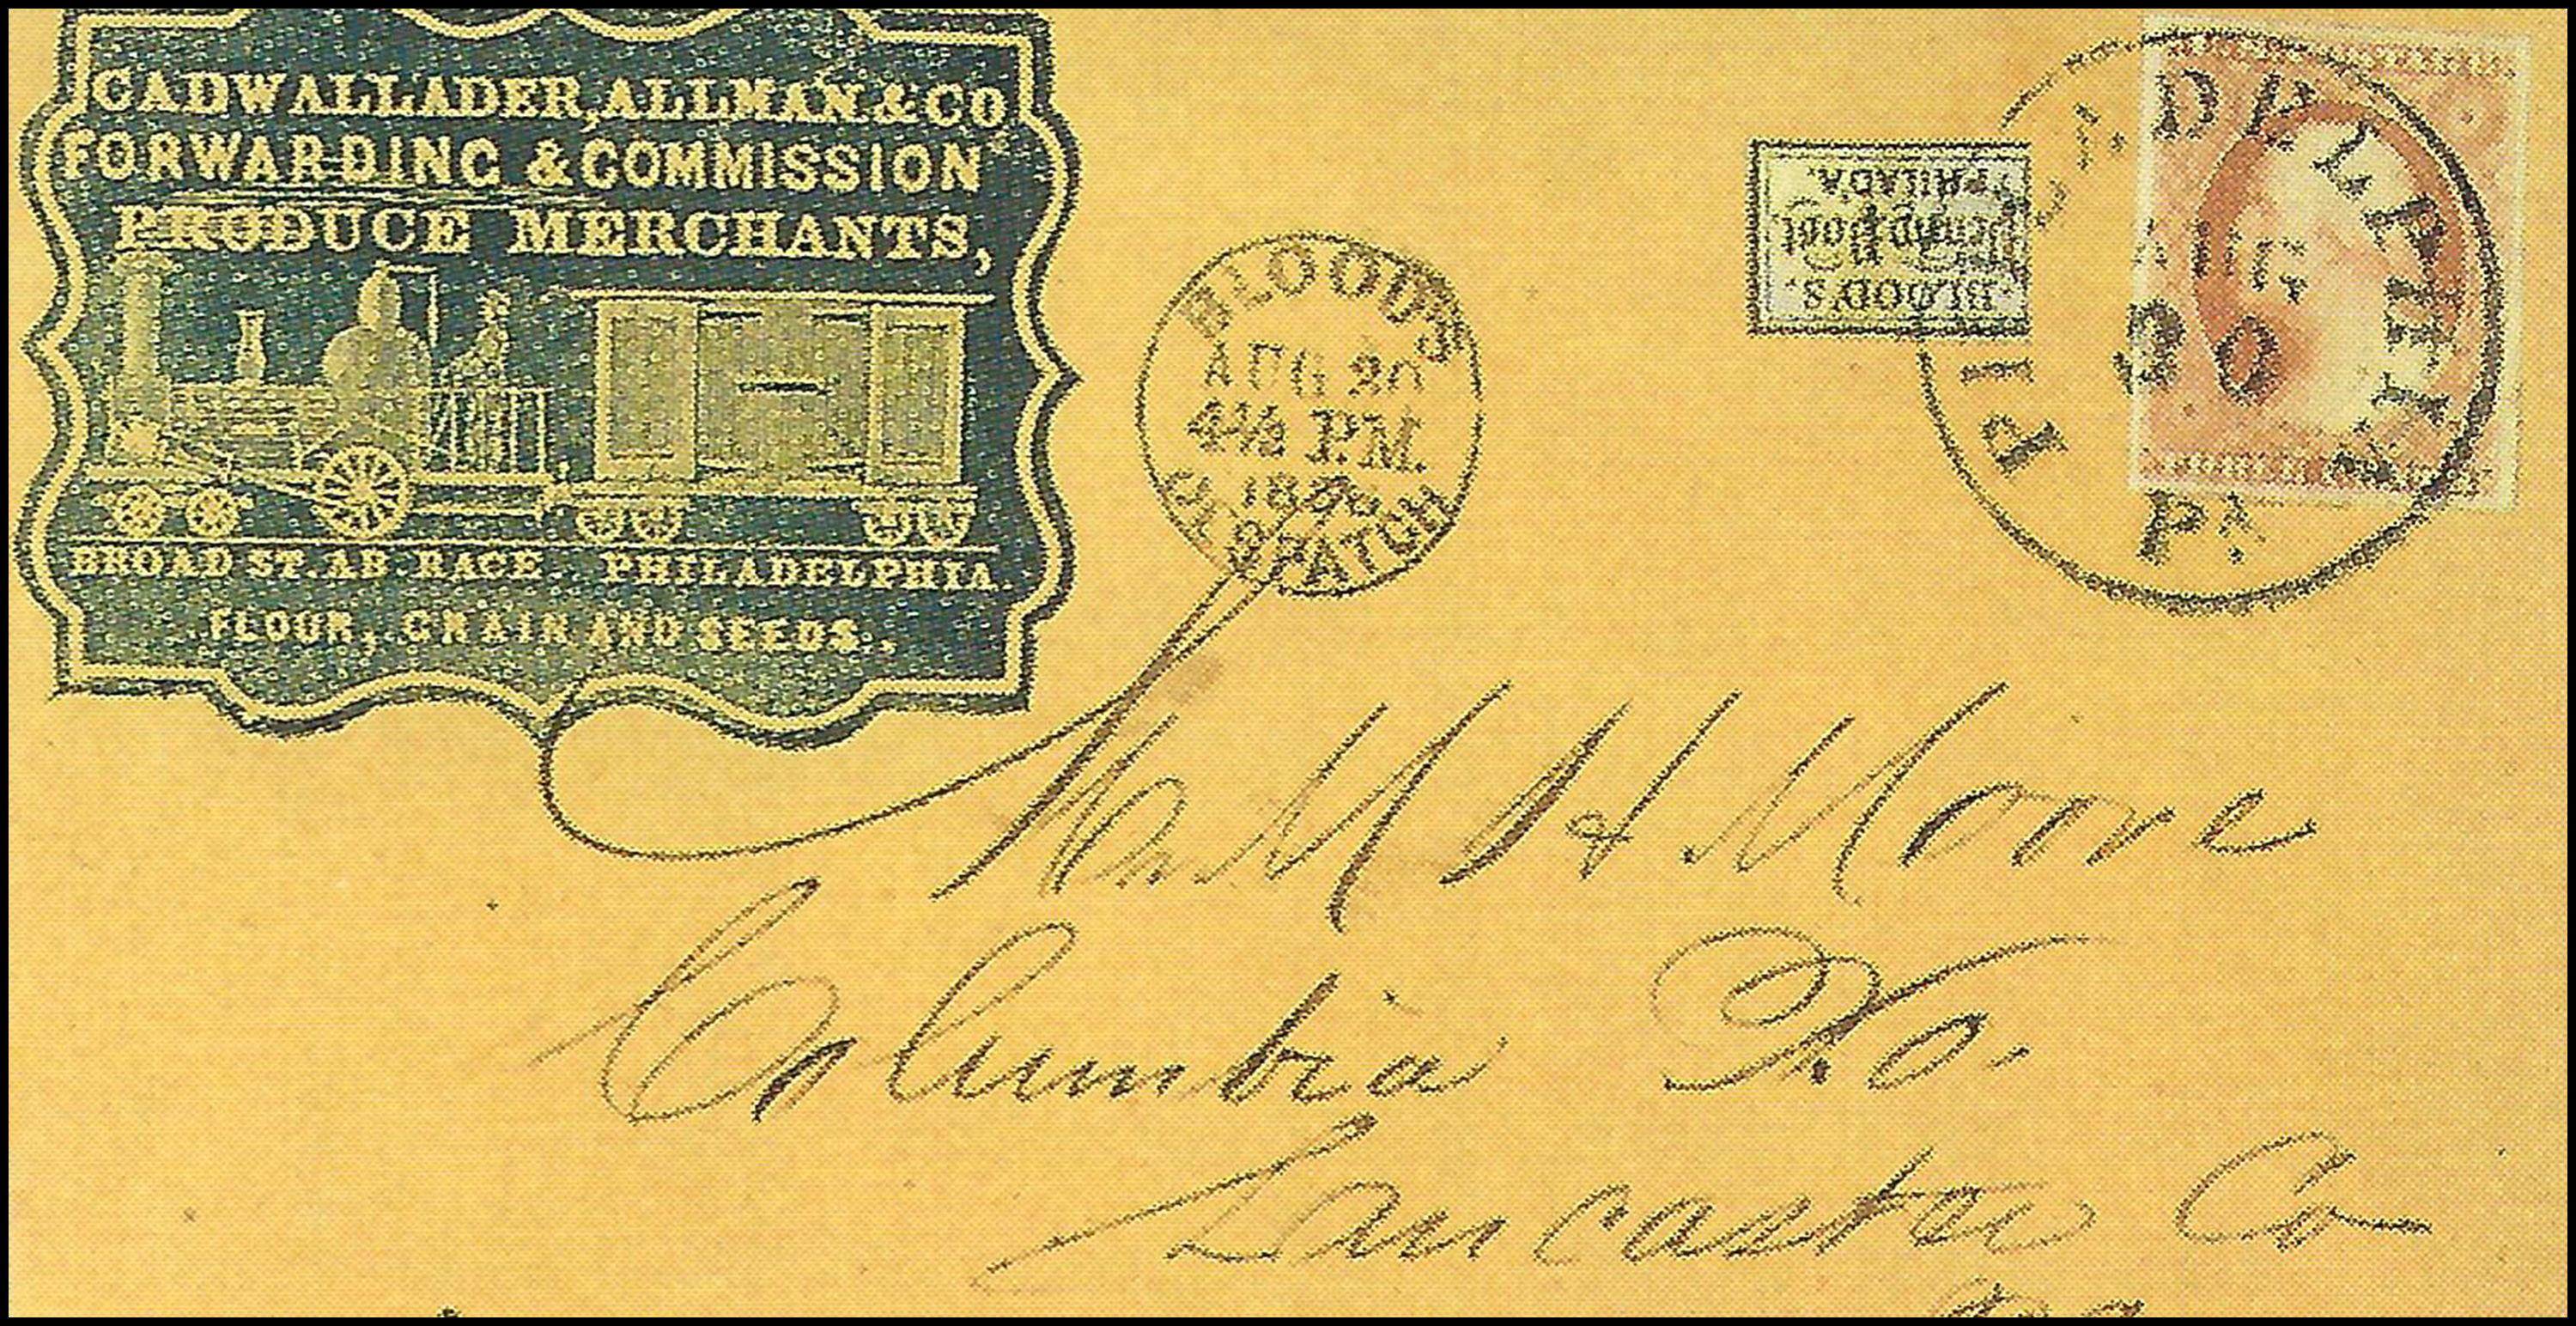 CADWALLADER, ALLMAN & CO
FORWARDING & COMMISSION
PRODUCE MERCHANTS,
BROAD ST. AB. RACE. PHILADELPHIA.
FLOUR, GRAIN AND SEEDS.
BLOOD'S
AUG 20
4½ P.M.
DESPATCH
BLOOD'S
Penny Post
PHILADA.
PHILADELPHIA
AUG
20
Pa
Mr M H Moore
Columbia Po.
Lancaster Co
Pa